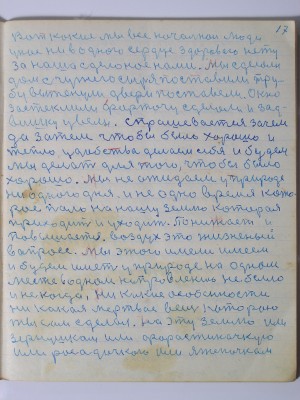 17
Вот какие мы все печальные люди
у нас ни в одного сердца здорового нету
за наше сделоное нами. Мы сделали
дом с чугегосыря поставили тру-
бу вытенули двери поставели. Окно
застеклили форточу сделали и зад-
вишку увели. Спрашевается зачем
да затем чтобы было хорошо и
тепло удобства делаем себя и будем
мы делать для того, чтобы было
хорошо. Мы не ожидали у природе
ни одного дня. и не одно время кото-
рое шло на нашу землю которая
приходит и уходит. Понижает и
повышаеть воздух это жизненый
вапросе. Мы этого имели имеем
и будем иметь у природе на одном
месте водном направлению не было
и не когда, ни какие особености
ни какая мертвая вещ которою
мы сами сделали. На эту землю или
зернушком или
или росадочкою или яичичкам